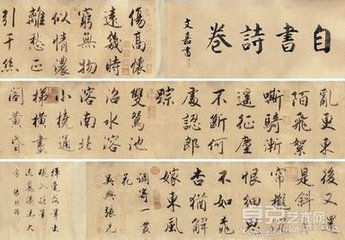 自書詩卷
文嘉書
傷高懷
遠幾時
窮無物
似情濃
離愁正
引千絲
亂更東
陌飛絮
嘶騎漸
遙征塵
不斷何
處認郎
踪
雙鴛池
沼水溶
溶南北
小橈通
梯橫畫
閣黃昏
後又還
是斜月
簾櫳沉
恨細思
不如桃
杏猶解
嫁東風
調寄一叢
花
吳興張先
艺术网